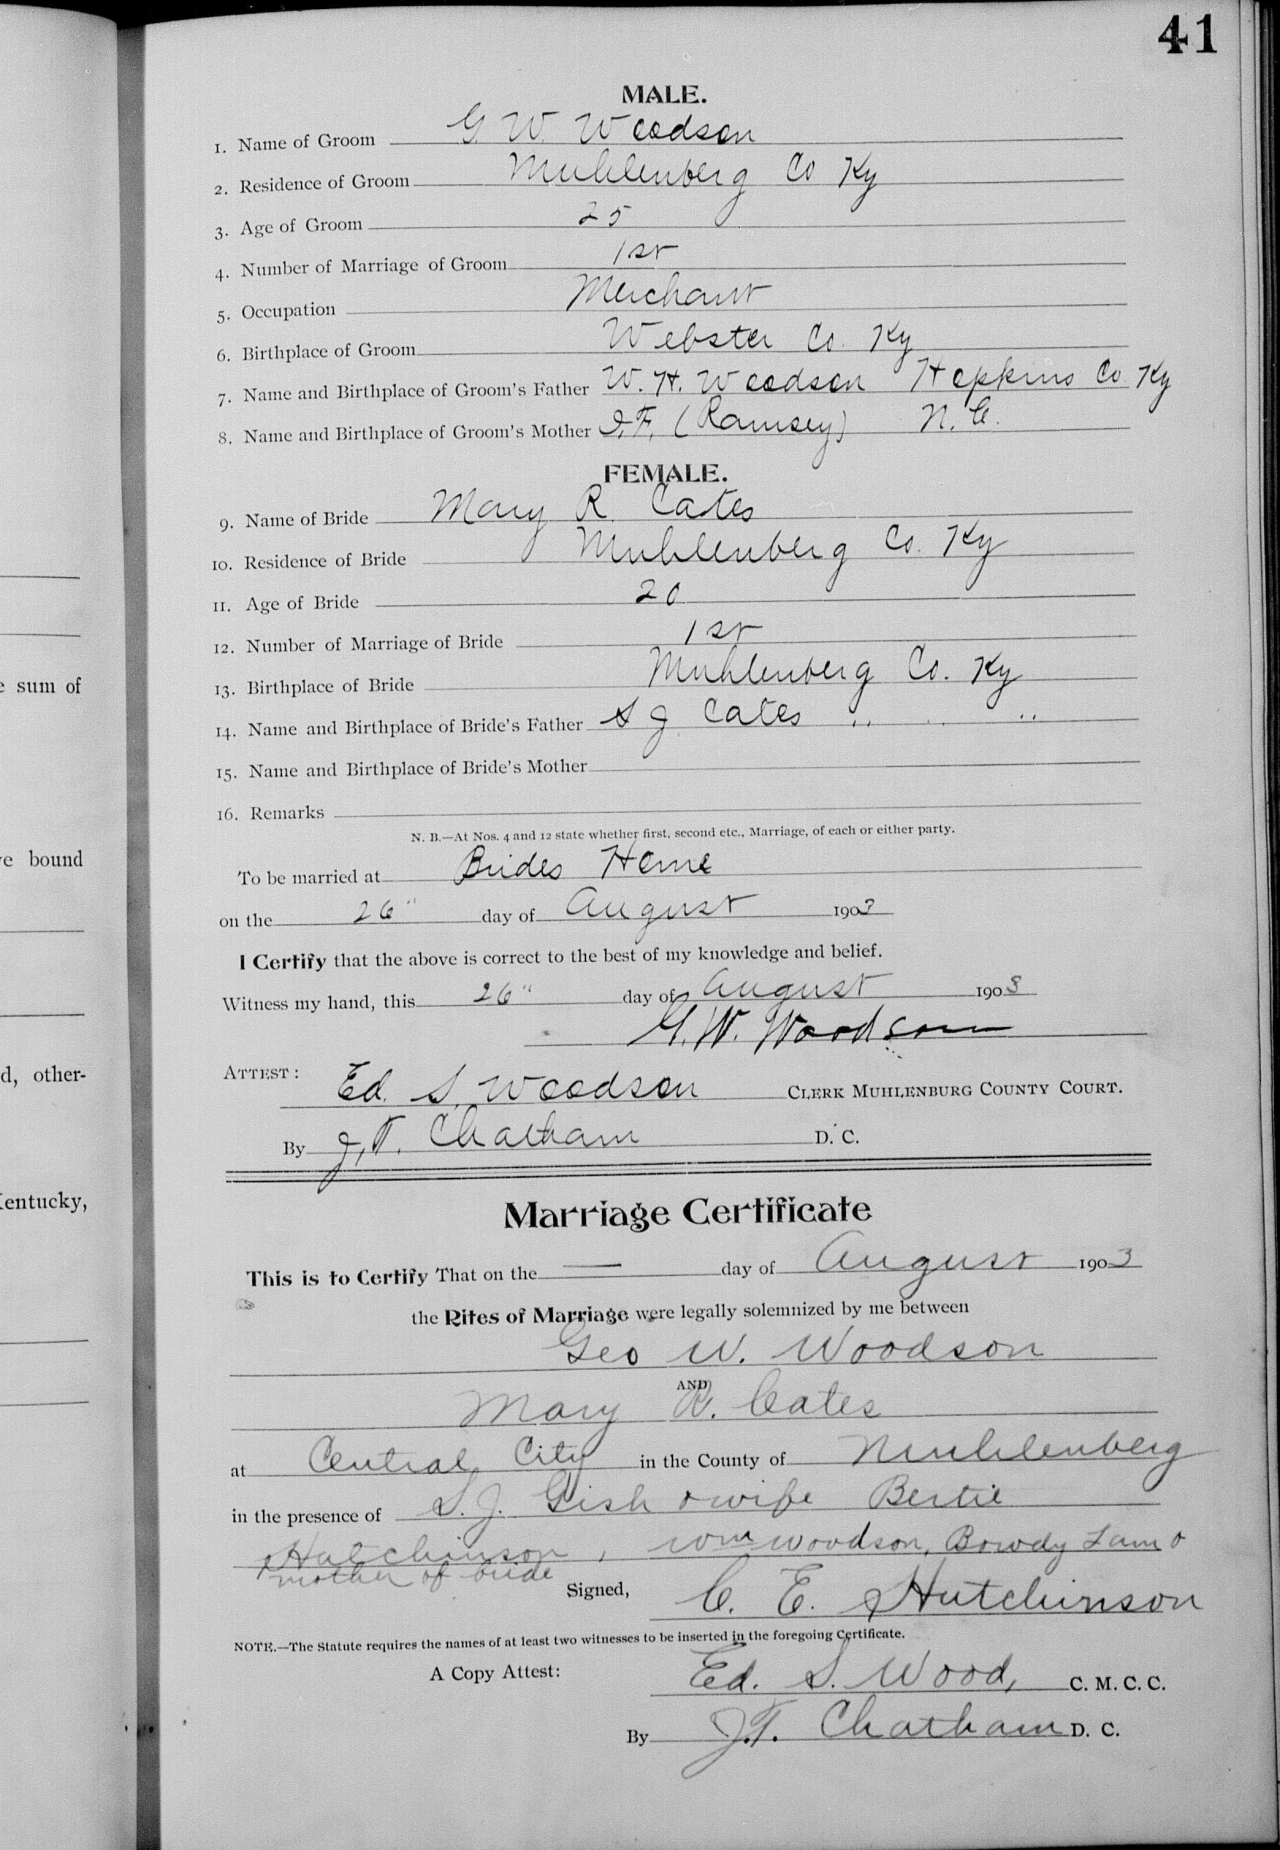 41
MALE.
1. Name of Groom G. W. Woodson
2. Residence of Groom Muhlenberg Co Ky
3. Age of Groom 25
4. Number of Marriage of Groom 1st
5. Occupation Merchant
6. Birthplace of Groom Webster Co. Ky
7. Name and Birthplace of Groom's Father W. H. Woodson Hopkins Co. Ky
8. Name and Birthplace of Groom's Mother F. (Ramsey) N. C.
FEMALE.
9. Name of Bride Mary R. Cates
10. Residence of Bride Muhlenberg Co. Ky
11. Age of Bride 20
12. Number of Marriage of Bride 1st
13. Birthplace of Bride Muhlenberg Co. Ky
e sum of
14. Name and Birthplace of Bride's Father S J Cates " "
15. Name and Birthplace of Bride's Mother
16. Remarks
N. B.—At Nos. 4 and 12 state whether first, second etc., Marriage, of each or either party.
e bound
To be married at Brides Home
on the 26" day of August 1903
I Certify that the above is correct to the best of my knowledge and belief.
Witness my hand, this 26" day of August 1903
G. W. Woodson
d, other-
ATTEST: Ed. S. Woodson CLERK MUHLENBURG COUNTY COURT.
By J. T. Chatham D. C.
Kentucky,
Marriage Certificate
This is to Certify That on the — day of August 1903
the Rites of Marriage were legally solemnized by me between
Geo W. Woodson
AND
Mary R. Cates
at Central City in the County of Muhlenberg
in the presence of S. J. Gish & wife Bertie
Hutchinson, Wm Woodson, Bowdy Lam &
mother of bride
Signed, C. E. Hutchinson
NOTE.—The Statute requires the names of at least two witnesses to be inserted in the foregoing Certificate.
A Copy Attest: Ed. S. Wood, C. M. C. C.
By J. T. Chatham D. C.